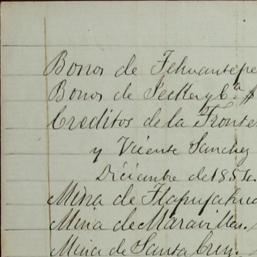 Bonos de Tehuantepe
Bonos de Jecker y Cª
Creditos de la Fronte
y Vicente Sanchez
Diciembre de 185
Mina de Tlapujahua
Mina de Maravillas.
Mina de Santa